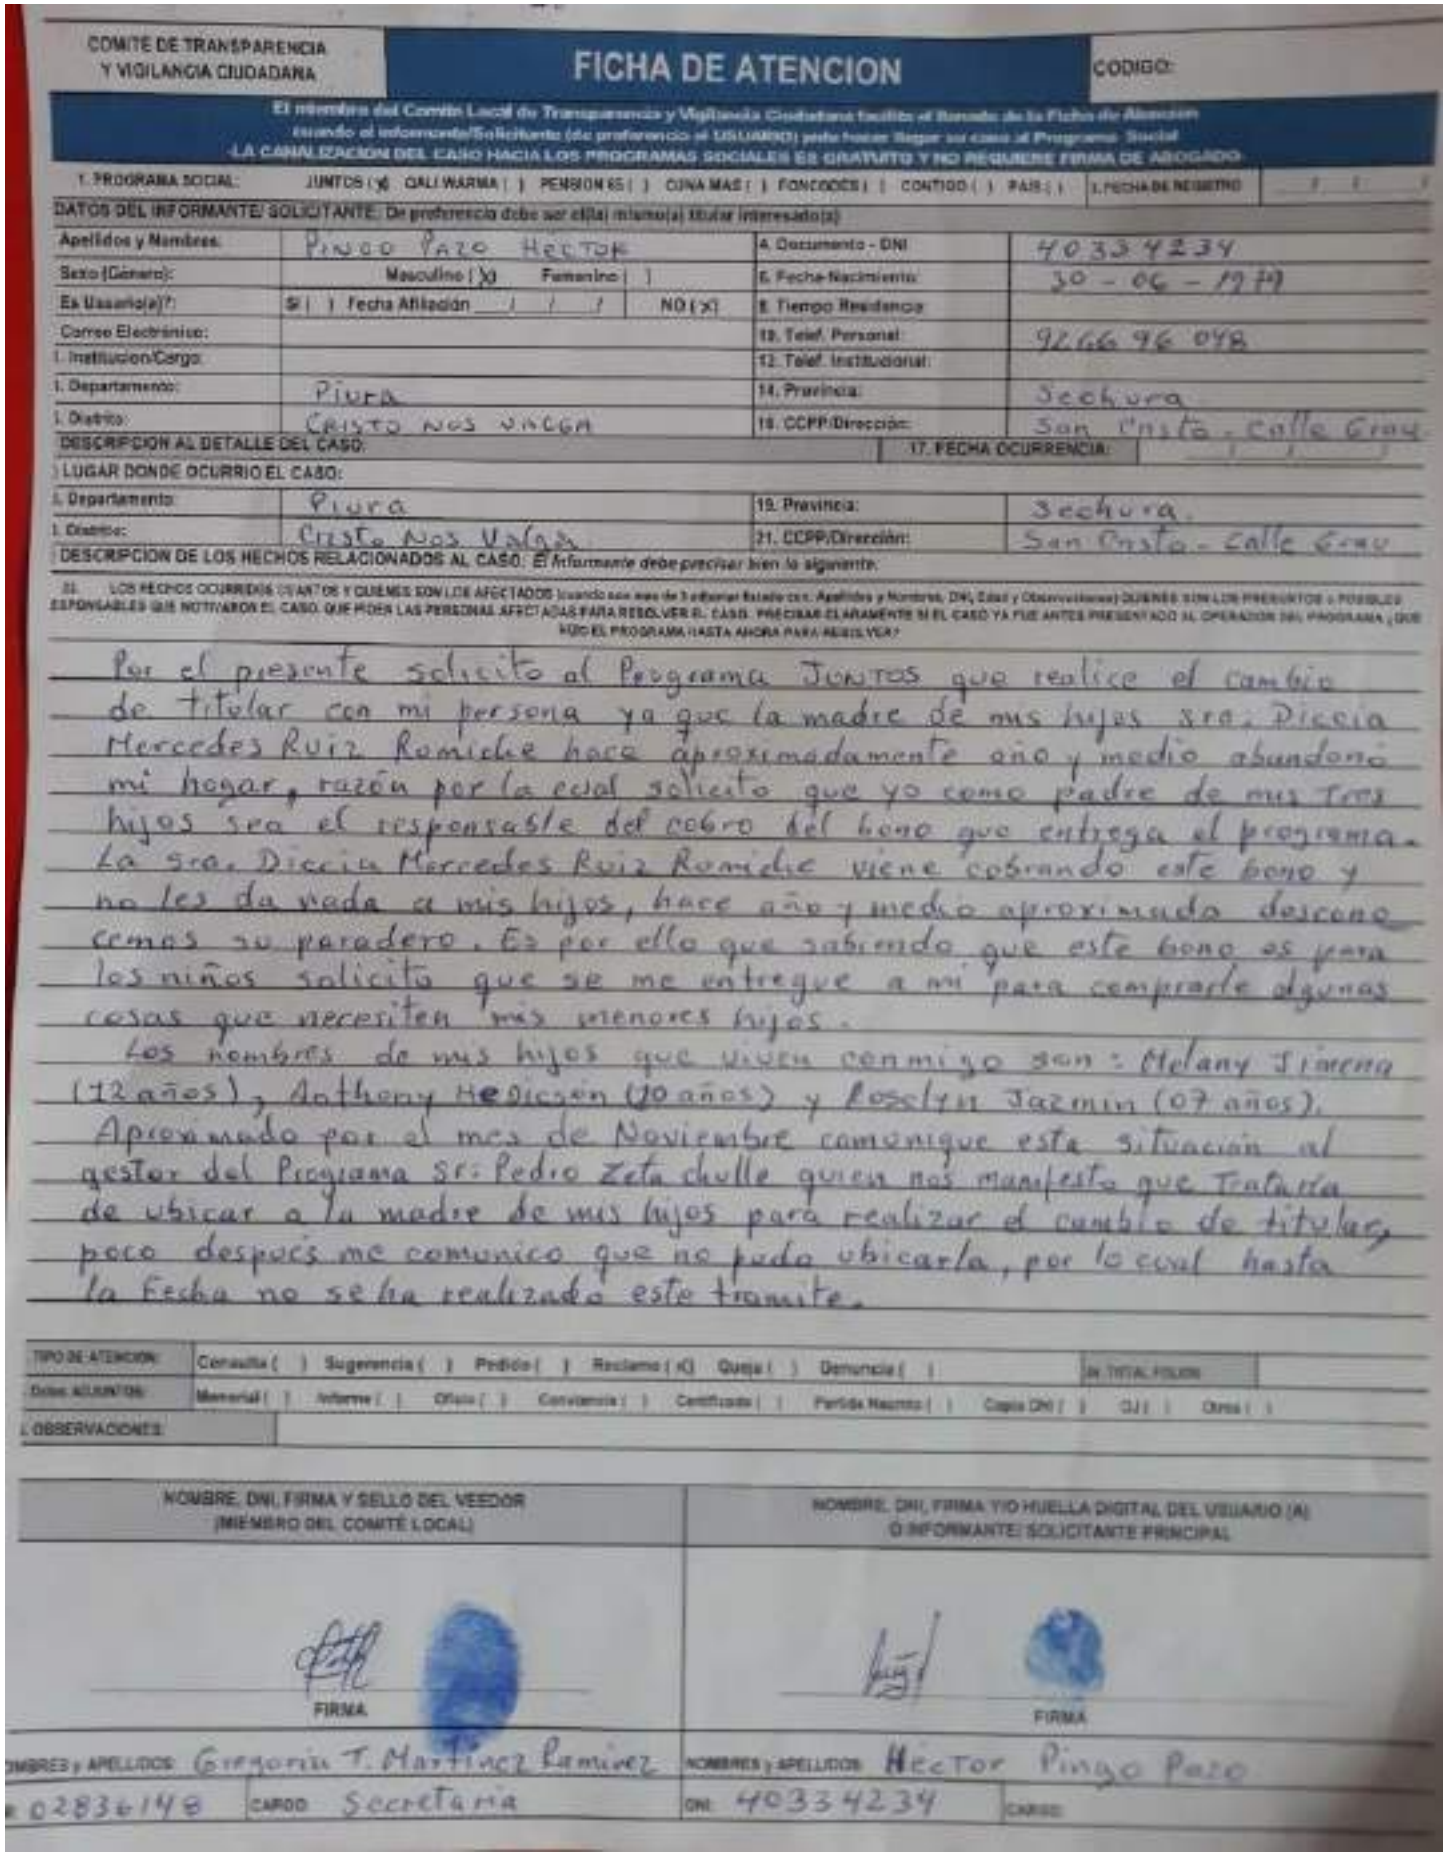 COMITE DE TRANSPARENCIA
Y VIGILANCIA CIUDADANA
FICHA DE ATENCION
CODIGO:
El miembro del Comite Local de Transparencia y Vigilancia Ciudadana facilita el llenado de la Ficha de Atencion
cuando el informante/Solicitante (de preferencia el USUARIO) pide hacer llegar su caso al Programa Social
-LA CANALIZACION DEL CASO HACIA LOS PROGRAMAS SOCIALES ES GRATUITO Y NO REQUIERE FIRMA DE ABOGADO
1. PROGRAMA SOCIAL: JUNTOS (X) QALI WARMA ( ) PENSION 65 ( ) CUNA MAS ( ) FONCODES ( ) CONTIGO ( ) PAIS ( ) FECHA DE REGISTRO / /
DATOS DEL INFORMANTE/ SOLICITANTE: De preferencia debe ser el(la) mismo(a) titular interesado(a)
Apellidos y Nombres: PINGO PAZO HECTOR 4. Documento - DNI 40334234
Sexo (Género): Masculino (X) Femenino ( ) 6. Fecha Nacimiento: 30 - 06 - 1979
Es Usuario(a)?: SI ( ) Fecha Afiliación / / / NO (X) 8. Tiempo Residencia:
Correo Electrónico: 10. Telef. Personal: 926696048
Institucion/Cargo: 12. Telef. Institucional:
Departamento: Piura 14. Provincia: Sechura
Distrito: CRISTO NOS VALGA 16. CCPP/Dirección: San Cristo - Calle Grau
DESCRIPCION AL DETALLE DEL CASO: 17. FECHA OCURRENCIA: / /
LUGAR DONDE OCURRIO EL CASO:
Departamento: Piura 19. Provincia: Sechura.
Distrito: Cristo Nos Valga 21. CCPP/Dirección: San Cristo - Calle Grau
DESCRIPCION DE LOS HECHOS RELACIONADOS AL CASO: El informante debe precisar bien lo siguiente.
22. LOS HECHOS OCURRIDOS CUANTOS Y QUIENES SON LOS AFECTADOS (cuando son mas de 3 adjuntar listado con: Apellidos y Nombres, DNI, Edad y Observaciones) QUIENES SON LOS PRESUNTOS o POSIBLES
ESPONSABLES QUE MOTIVARON EL CASO. QUE PIDEN LAS PERSONAS AFECTADAS PARA RESOLVER EL CASO. PRECISAR CLARAMENTE SI EL CASO YA FUE ANTES PRESENTADO AL OPERADOR DEL PROGRAMA ¿QUE
HIZO EL PROGRAMA HASTA AHORA PARA RESOLVER?
Por el presente solicito al Programa JUNTOS que realice el cambio
de titular con mi persona ya que la madre de mis hijos sra: Diccia
Mercedes Ruiz Romiche hace aproximadamente año y medio abandonó
mi hogar, razón por la cual solicito que yo como padre de mis tres
hijos sea el responsable del cobro del bono que entrega el programa.
La sra. Diccia Mercedes Ruiz Romiche viene cobrando este bono y
no les da nada a mis hijos, hace año y medio aproximado descono
cemos su paradero. Es por ello que sabiendo que este bono es para
los niños solicito que se me entregue a mi para comprarle algunas
cosas que necesiten mis menores hijos.
Los nombres de mis hijos que viven conmigo son: Melany Jimena
(12 años), Anthony (10 años) y Roselyn Jazmin (07 años).
Aproximado por el mes de Noviembre comunique esta situación al
gestor del Programa Sr: Pedro Zeta chulle quien nos manifesto que Trataría
de ubicar a la madre de mis hijos para realizar el cambio de titular,
poco después me comunico que no pudo ubicarla, por lo cual hasta
la Fecha no se ha realizado este tramite.
TIPO DE ATENCION: Consulta ( ) Sugerencia ( ) Pedido ( ) Reclamo (X) Queja ( ) Denuncia ( ) TOTAL FOLIOS
ADJUNTOS: Memorial ( ) Informe ( ) Oficio ( ) Constancia ( ) Certificado ( ) Partida Nacmto ( ) Copia DNI ( ) DJ ( ) Otros ( )
OBSERVACIONES:
NOMBRE, DNI, FIRMA Y SELLO DEL VEEDOR
(MIEMBRO DEL COMITÉ LOCAL)
NOMBRE, DNI, FIRMA Y/O HUELLA DIGITAL DEL USUARIO (A)
O INFORMANTE/ SOLICITANTE PRINCIPAL
FIRMA
FIRMA
OMBRES y APELLIDOS: Gregoria T. Martinez Ramirez NOMBRES y APELLIDOS: Hector Pingo Pazo
02836148 CARGO: Secretaria DNI: 40334234 CARGO: